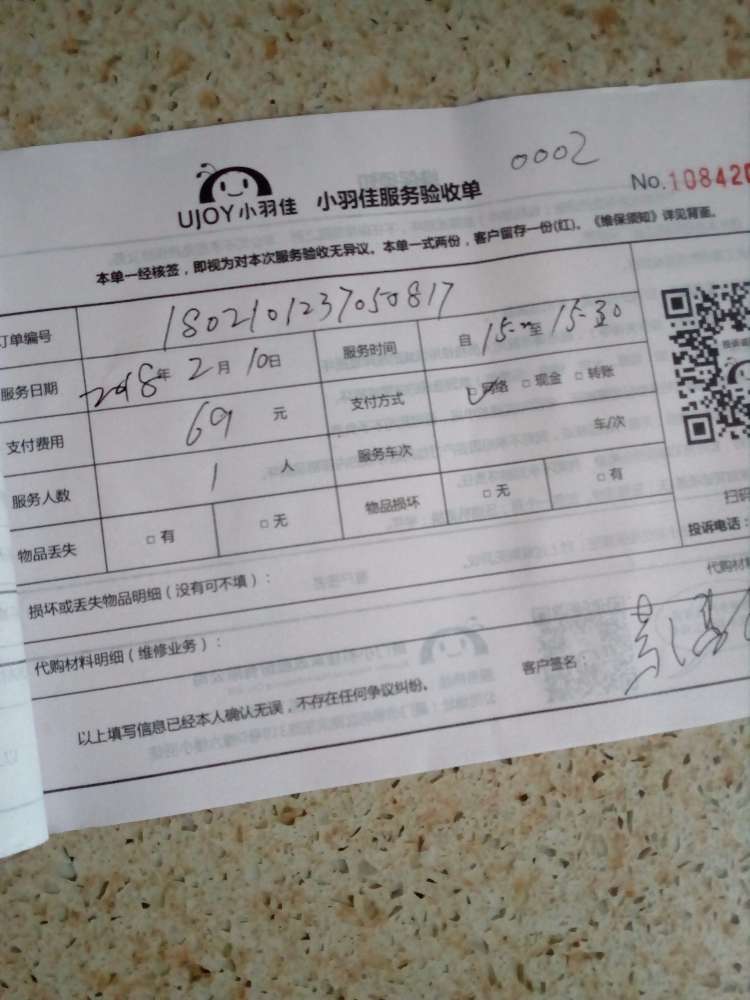 0002
UJOY小羽佳 小羽佳服务验收单 No.108420
本单一经核签，即视为对本次服务验收无异议。本单一式两份，客户留存一份(红)。《维保须知》详见背面。
订单编号 1802101237050817
服务日期 2018年2月10日 服务时间 自15-至15-30
支付费用 69元 支付方式 网络 □现金 □转账
服务人数 1人 服务车次 车/次
物品丢失 □有 □无 物品损坏 □无 □有
扫码
投诉电话：
损坏或丢失物品明细（没有可不填）：
代购材料
代购材料明细（维修业务）：
客户签名：
以上填写信息已经本人确认无误，不存在任何争议纠纷。